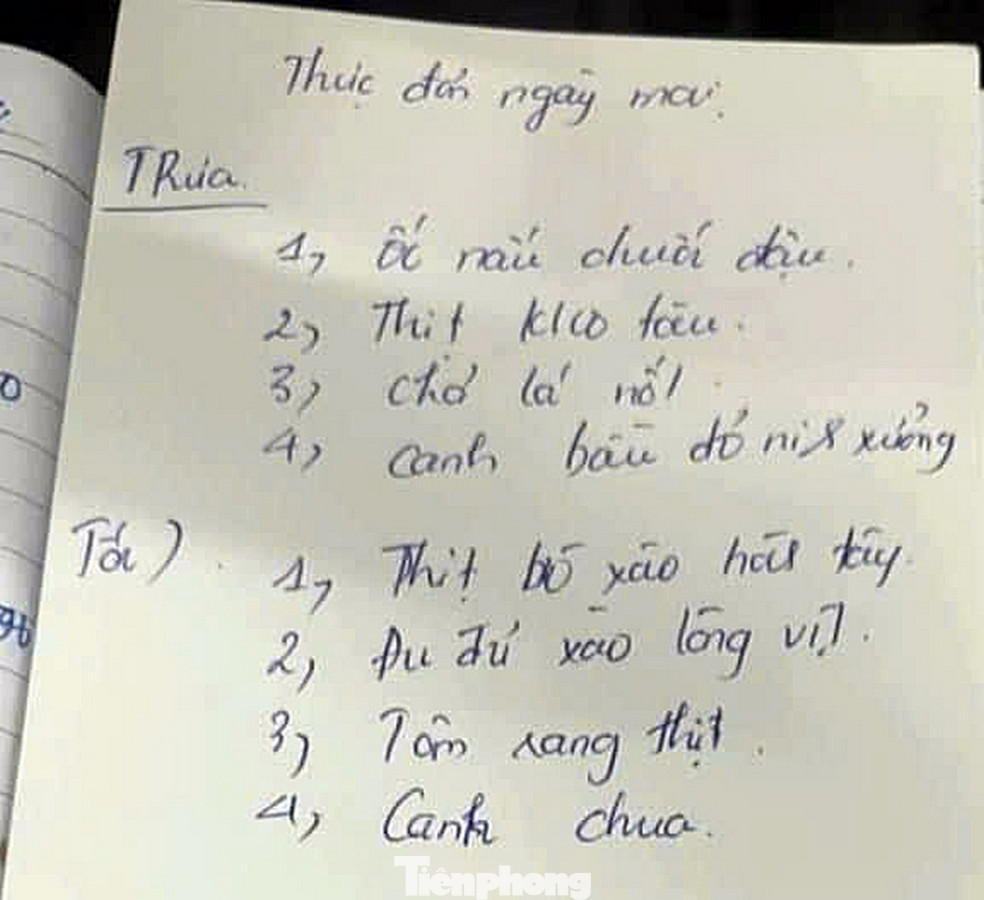 Thực đơn ngày mai.
TRưa.
1, Ốc nấu chuối đậu.
2, Thịt kho tàu.
3, chả lá nốt
4, canh bầu đỏ nix xưởng
Tối)
1, Thịt bò xào hàs tây.
2, Đu đủ xào lòng vịt.
3, Tôm rang thịt.
4, Canh chua.
96
Tiênphong